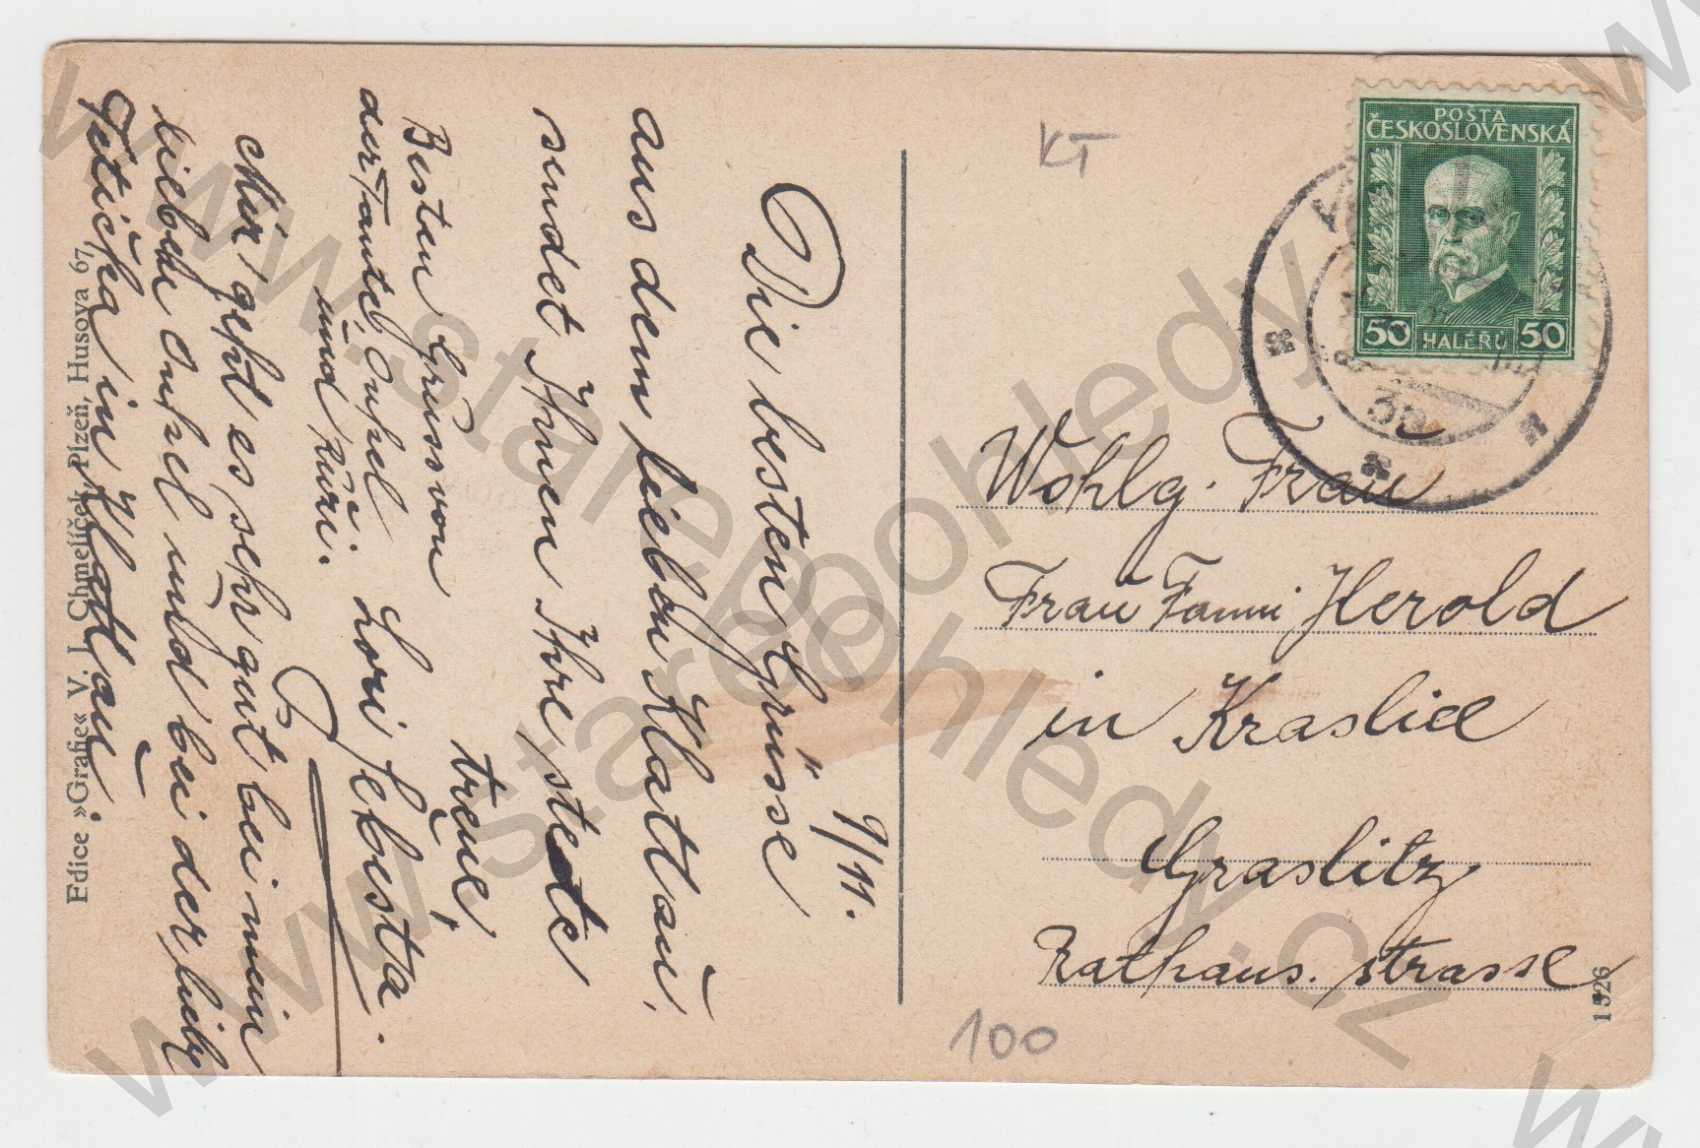 9/11.
Die besten Grüsse
aus dem lieben Klattau,
sendet Ihnen Ihre stets
treue,
Lori Šebesta.
Besten Gruss von
der Tante, Onkel
und Kuri.
Mir geht es sehr gut bei mein
lieben Onkel und bei der lieben
Tetička in Klattau
Edice »Grafie« V. J. Chmelíček, Plzeň, Husova 67
KT
POŠTA
ČESKOSLOVENSKÁ
50 HALÉŘŮ 50
Wohlg. Frau
Frau Fanni Herold
in Kraslice
Graslitz
Rathaus. strasse
1326
100
www.starepohledy.cz
www.starepohledy.cz